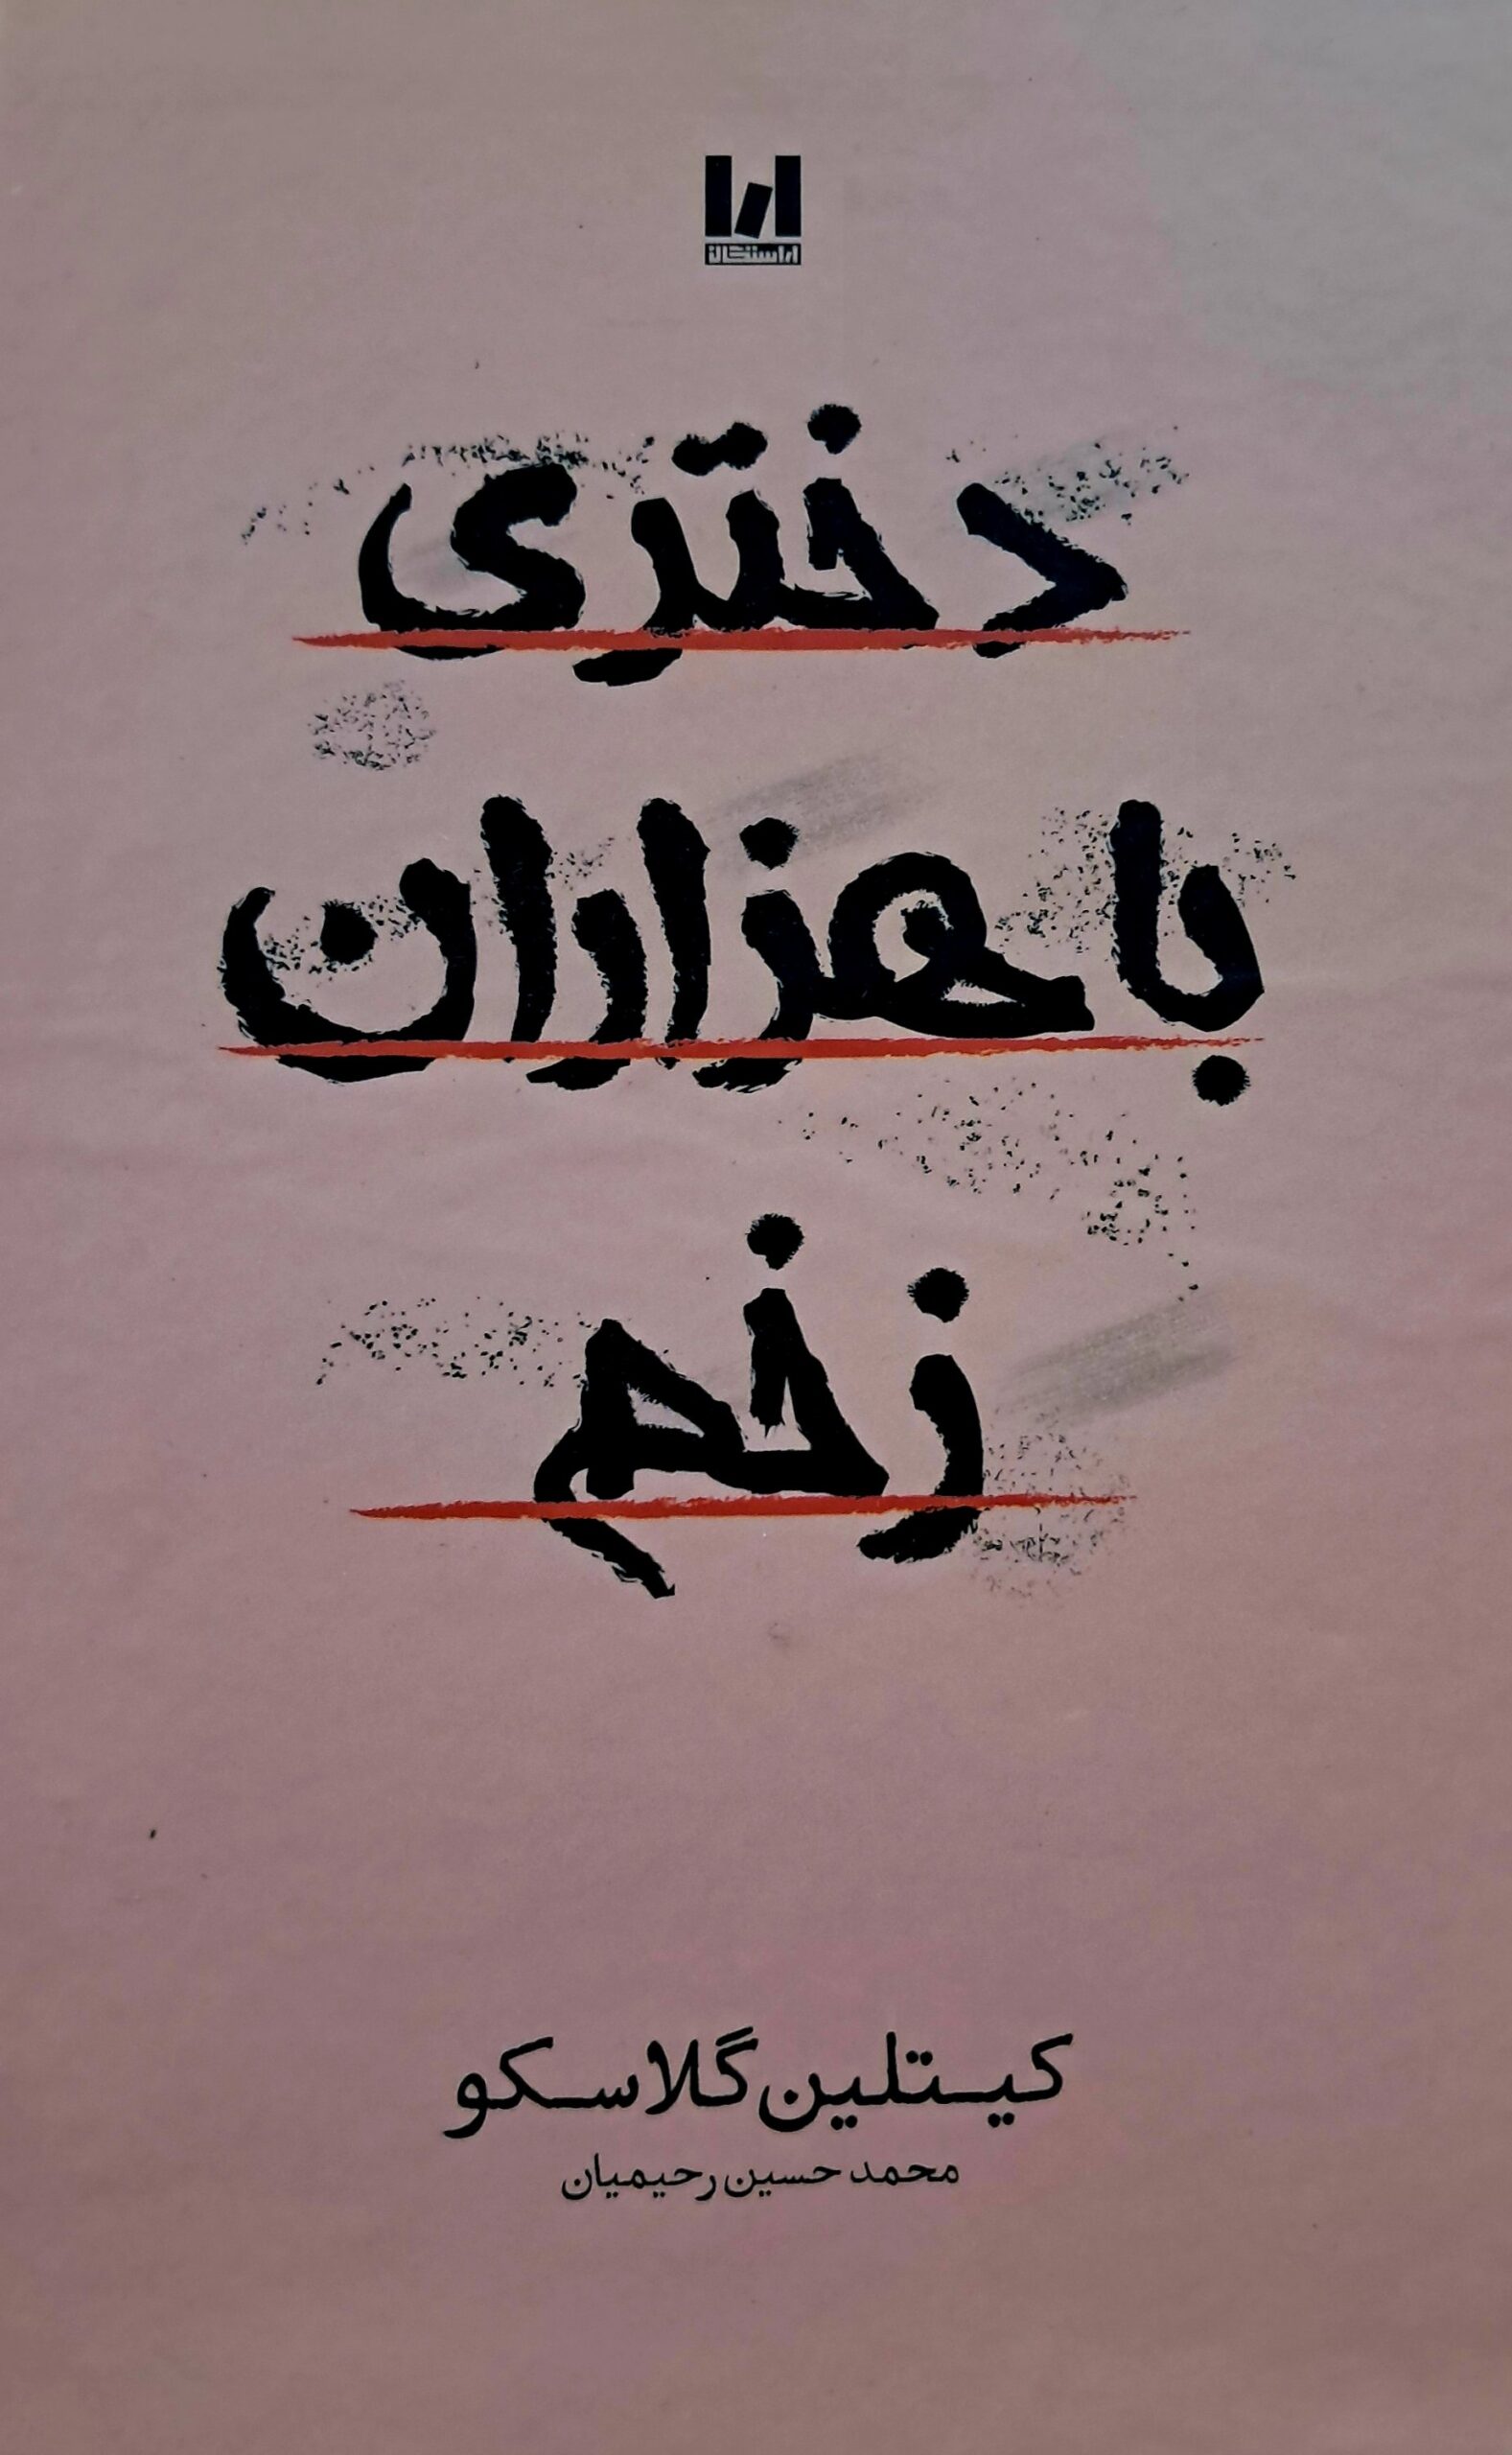 اراستگان
دختری
با هزاران
زخم
کیتلین گلاسکو
محمد حسین رحیمیان